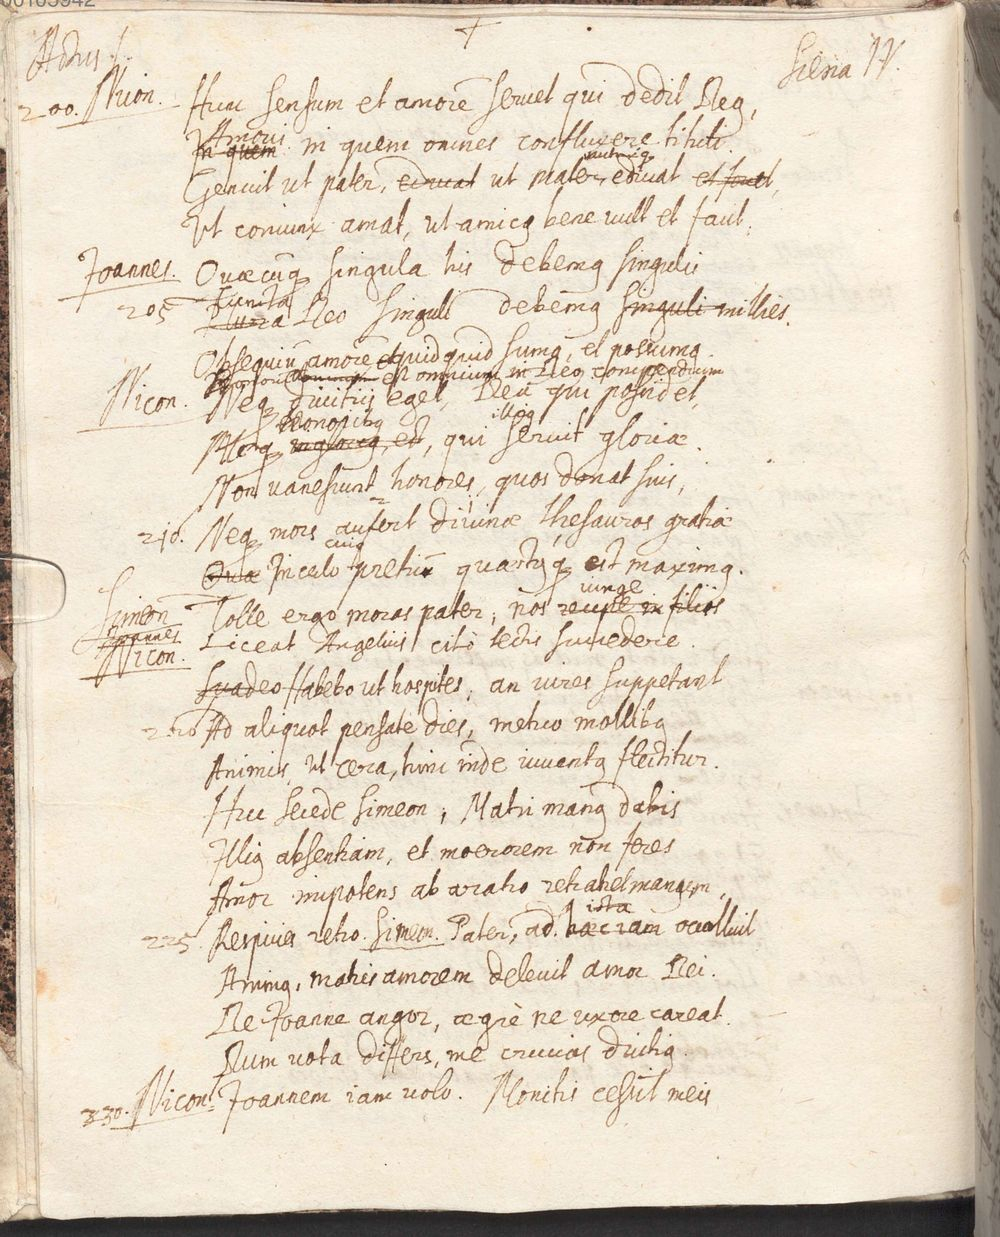 +
Actus I. Scena IV.
200. Nicon. Hunc sensum et amorē servet qui dedit Deq,
Amori
in quem in quem omnes confluxere tituli.
nutriq
Genuit ut pater, educat ut mater, educat et fovet,
Ut coniunx amat, ut amicq bene vult et favit.
Joannes. Quæcunq singula his debemq singulis
205 Juncta
Plura Deo singuli debemq singuli millies.
Obsequiū amorē et quidquid sumq, et possumq.
est omnium in Deo compendium
Nicon. Neq divitiis eget, Deū qui possidet,
honoribq illiq
Neq inglorius est, qui servit gloriæ.
Non vanescunt honores, quos donat suis,
210. Neq mors aufert divinæ thesauros gratiæ
cuiq
Quæ In cælo pretiū quartusq est maximq.
iunge
Simeon Tolle ergo moras pater, nos recipe in filios
Joannes Liceat Angelicis citò tectis succedere.
Nicon. Suadeo Habebo ut hospites, an vires suppetant
Ad aliquot pensate dies, metuo mollibq
Animis, ut cera, hinc inde iuventq flectitur.
Huc secede Simeon, Matri manq dabis
Illiq absentiam, et moerorem non feres
Amor impotens ab aratro retrahet manqm,
ista
225. Respicies retro. Simeon. Pater, ad hæc iam occalluit
Animq, matris amorem delevit amor Dei.
De Joanne angor, ægrè ne uxore careat.
Dum vota differs, me crucias diutiq.
230. Nicon. Joannem iam volo. Monitis cessit meis